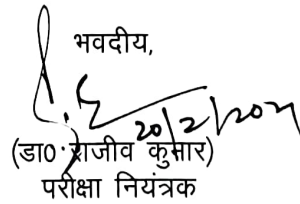 भवदीय,
20/2/
(डा० राजीव कुमार)
परीक्षा नियंत्रक